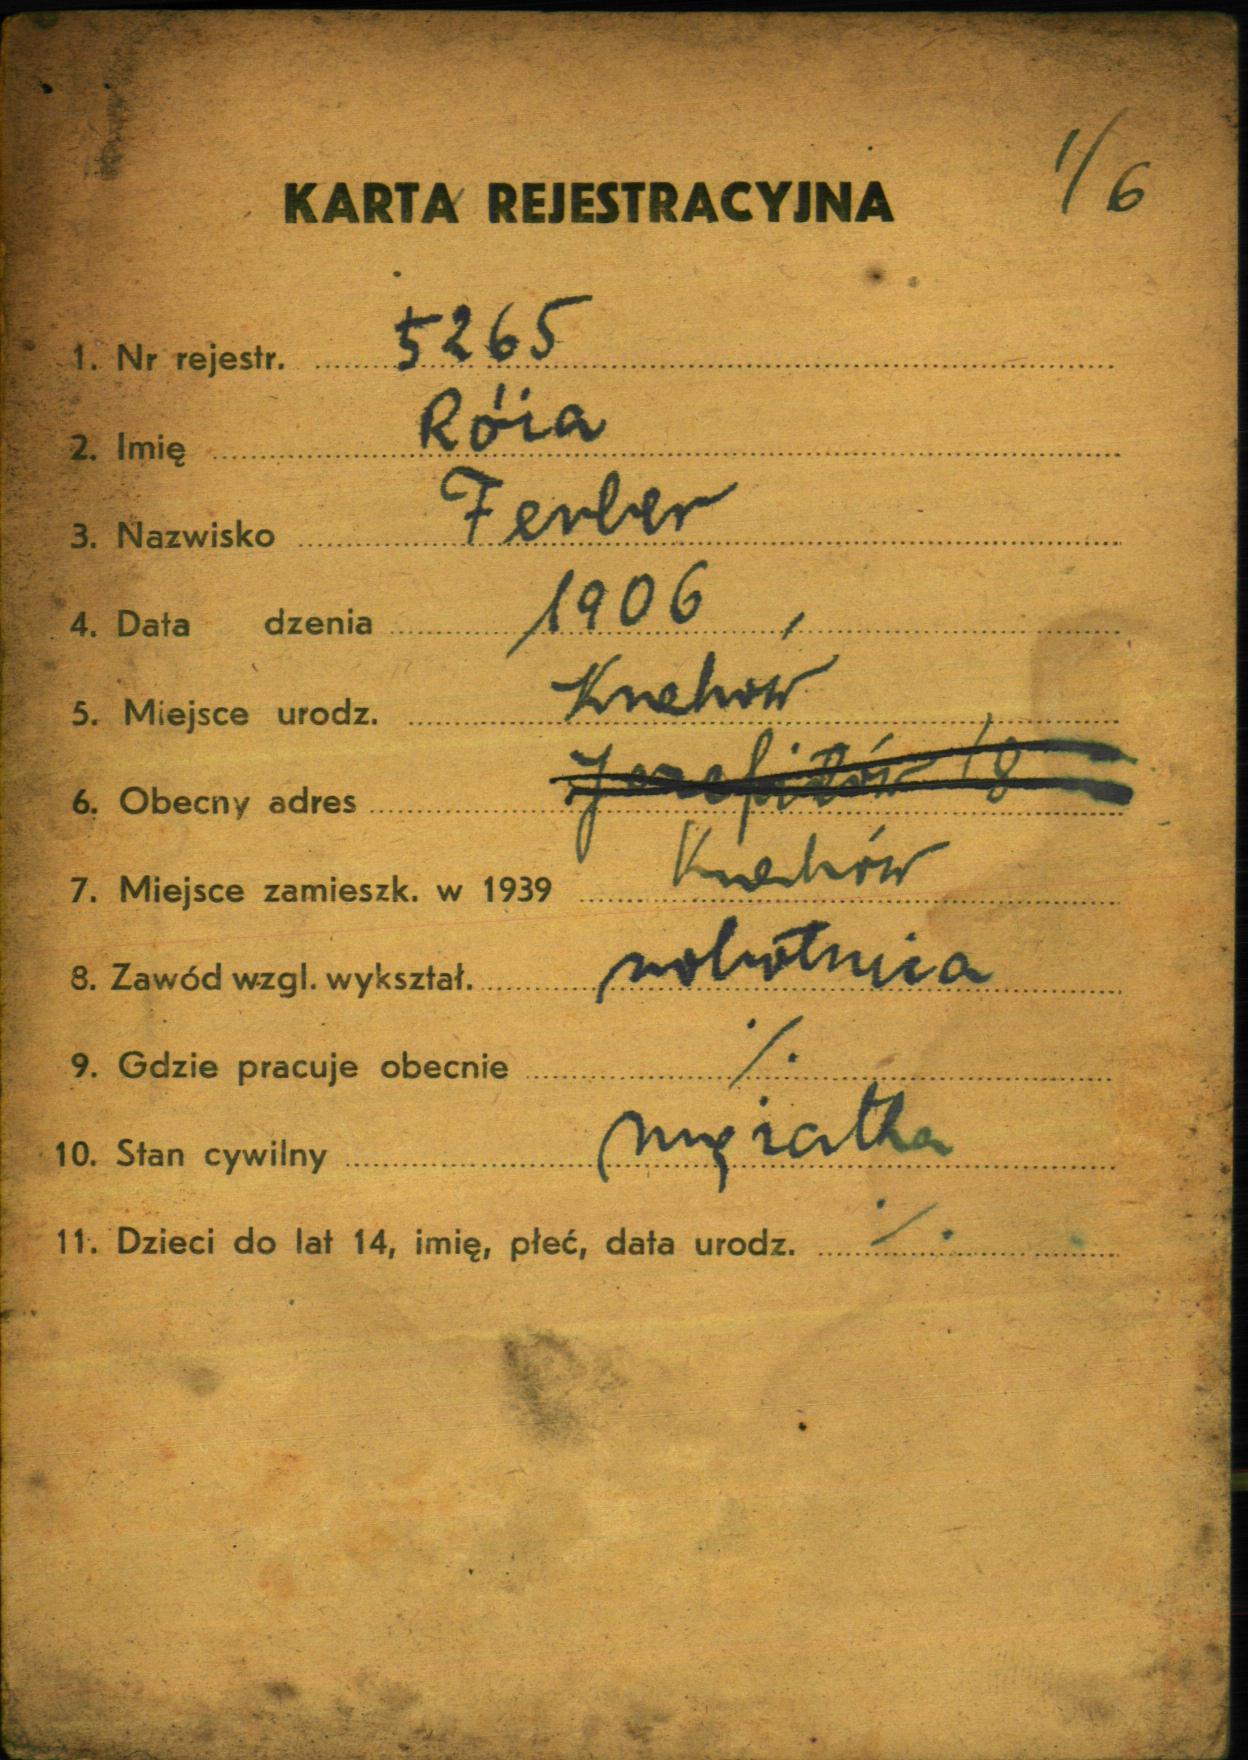 1/6
KARTA REJESTRACYJNA
1. Nr rejestr. 5265
2. Imię Róża
3. Nazwisko Ferber
4. Data dzenia 1906
5. Miejsce urodz. Kraków
6. Obecny adres Józefitów 18
7. Miejsce zamieszk. w 1939 Kraków
8. Zawód wzgl. wykształ. robotnica
9. Gdzie pracuje obecnie ./.
10. Stan cywilny mężatka
11. Dzieci do lat 14, imię, płeć, data urodz. ./.